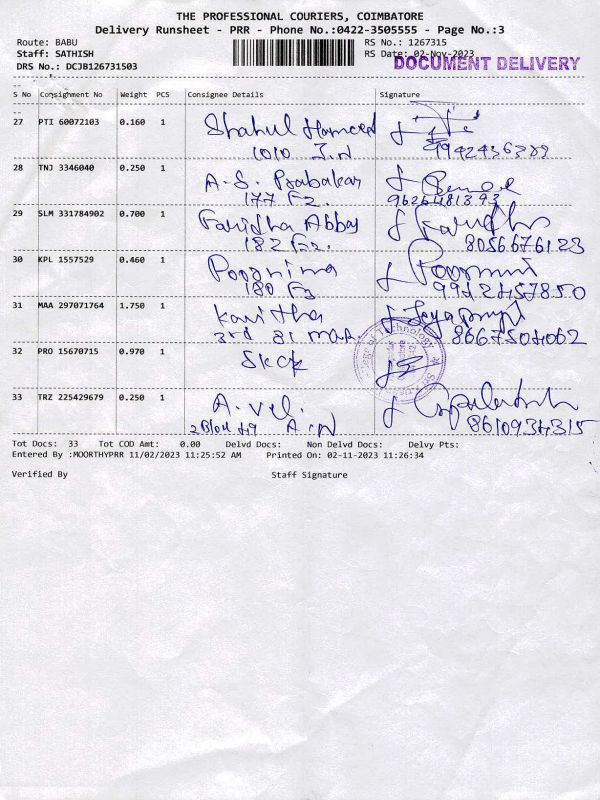 THE PROFESSIONAL COURIERS, COIMBATORE
Delivery Runsheet - PRR - Phone No.:0422-3505555 - Page No.:3
Route: BABU RS No.: 1267315
Staff: SATHISH RS Date: 02-Nov-2023
DRS No.: DCJB126731503 DOCUMENT DELIVERY
S No Consignment No Weight PCS Consignee Details Signature
27 PTI 60072103 0.160 1 Shahul Hameed
1010
28 TNJ 3346040 0.250 1 A.S. Prabakar
177 F2. 9626481393
29 SLM 331784902 0.700 1 Faridha Abbas
182 F2. 8056676123
30 KPL 1557529 0.460 1 Poornima
180 F3 9942457850
31 MAA 297071764 1.750 1 Kavitha
3rd 8667504062
32 PRO 15670715 0.970 1 Skck
of Technology
33 TRZ 225429679 0.250 1 A. vel.
8610934315
Tot Docs: 33 Tot COD Amt: 0.00 Delvd Docs: Non Delvd Docs: Delvy Pts:
Entered By :MOORTHYPRR 11/02/2023 11:25:52 AM Printed On: 02-11-2023 11:26:34
Verified By Staff Signature